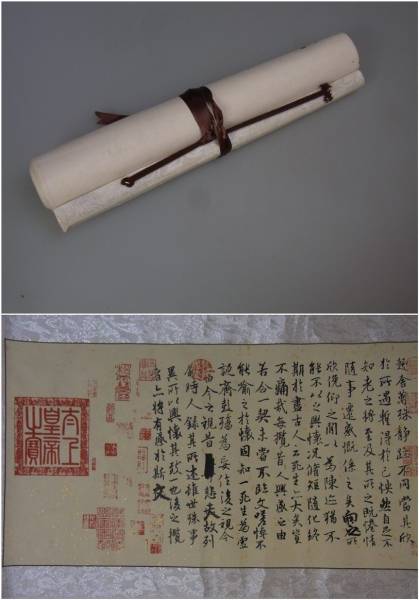 趣舍萬殊靜躁不同當其欣
於所遇暫得於己怏然自足不
知老之將至及其所之既惓情
隨事遷感慨係之矣向之所
欣俛仰之閒以為陳迹猶不
能不以之興懷況脩短隨化終
期於盡古人云死生亦大矣豈
不痛哉每攬昔人興感之由
若合一契未嘗不臨文嗟悼不
能喻之於懷固知一死生為虛
誕齊彭殤為妄作後之視今
亦由今之視昔悲夫故列
敘時人錄其所述雖世殊事
異所以興懷其致一也後之攬
者亦將有感於斯文
太上
皇帝
之寶